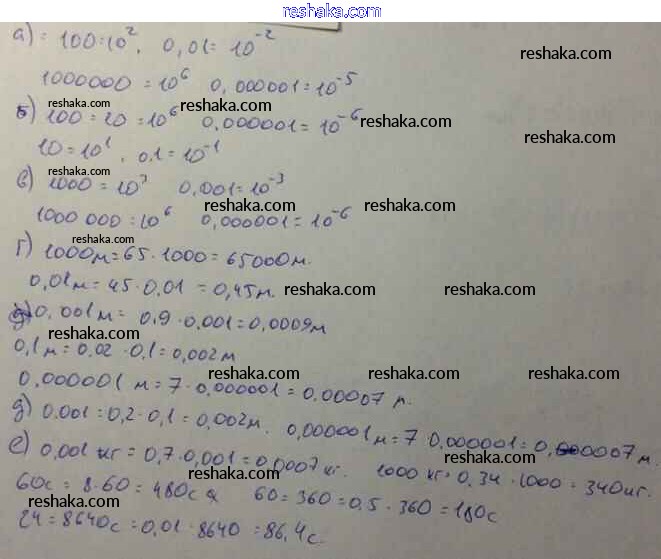 reshaka.com
а) = 100=10², 0,01=10⁻²
reshaka.com
1000000 = 10⁶ 0,000001=10⁻⁵
reshaka.com reshaka.com reshaka.com
б) 100=10=10⁶ 0,000001=10⁻⁶
10=10¹, 0,1=10⁻¹
reshaka.com
в) 1000=10³ 0,001=10⁻³
reshaka.com reshaka.com
1000 000=10⁶ 0,000001=10⁻⁶
reshaka.com
г) 1000м=65·1000=65000м.
0,01м=45·0,01=0,45м. reshaka.com reshaka.com
д) 0,001м= 0,9·0,001=0,0009м
reshaka.com reshaka.com
0,1м=0,02·0,1=0,002м
reshaka.com reshaka.com reshaka.com
0,000001 м=7·0,000001=0,00007 м.
д) 0,001=0,2·0,1=0,002м. 0,000001м=7·0,000001=0,000007м.
е) 0,001 кг=0,7·0,001=0,0007кг. 1000 кг=0,34·1000=340кг.
reshaka.com
60с=8·60=480с 60=360=0,5·360=180с
reshaka.com reshaka.com reshaka.com
24=8640с=0,01·8640=86,4с.